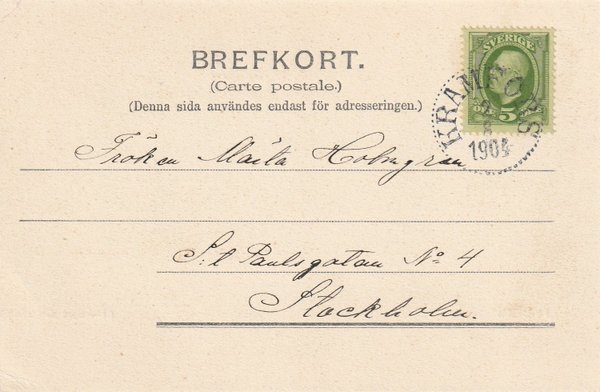 BREFKORT.
(Carte postale.)
(Denna sida användes endast för adresseringen.)
SVERIGE
5
KRAMFORS
1904
Fröken Maita Holmgren
S:t Paulsgatan No 4
Stockholm.